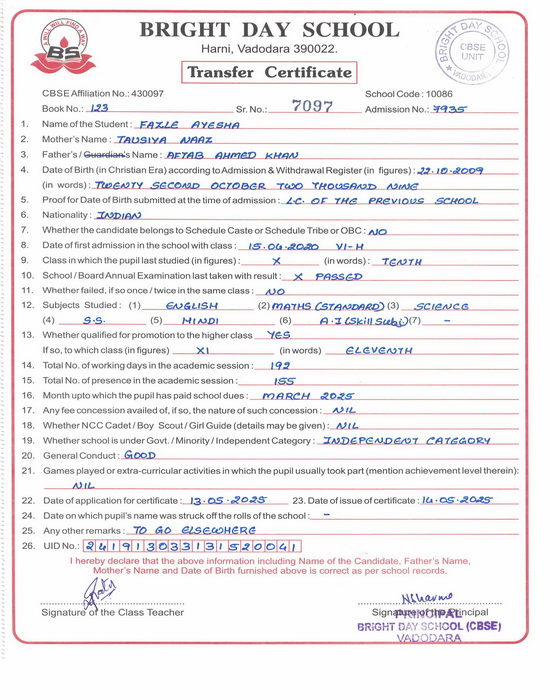 A WILL WILL FIND A WAY
BS
BRIGHT DAY SCHOOL
Harni, Vadodara 390022.
Transfer Certificate
BRIGHT DAY SCHOOL
CBSE
UNIT
VADODARA
CBSE Affiliation No.: 430097 School Code : 10086
Book No.: 123 Sr. No.: 7097 Admission No.: 7935
1. Name of the Student : FAZLE AYESHA
2. Mother's Name : TAUSIYA NAAZ
3. Father's / Guardian's Name : AFTAB AHMED KHAN
4. Date of Birth (in Christian Era) according to Admission & Withdrawal Register (in figures) : 22.10.2009
(in words) : TWENTY SECOND OCTOBER TWO THOUSAND NINE
5. Proof for Date of Birth submitted at the time of admission : L.C. OF THE PREVIOUS SCHOOL
6. Nationality : INDIAN
7. Whether the candidate belongs to Schedule Caste or Schedule Tribe or OBC : NO
8. Date of first admission in the school with class : 15.06.2020 VI-H
9. Class in which the pupil last studied (in figures) : X (in words) : TENTH
10. School / Board Annual Examination last taken with result : X PASSED
11. Whether failed, if so once / twice in the same class : NO
12. Subjects Studied : (1) ENGLISH (2) MATHS (STANDARD) (3) SCIENCE
(4) S.S. (5) HINDI (6) A.I (Skill Subj) (7) -
13. Whether qualified for promotion to the higher class YES
If so, to which class (in figures) XI (in words) ELEVENTH
14. Total No. of working days in the academic session : 192
15. Total No. of presence in the academic session : 155
16. Month upto which the pupil has paid school dues : MARCH 2025
17. Any fee concession availed of, if so, the nature of such concession : NIL
18. Whether NCC Cadet / Boy Scout / Girl Guide (details may be given) : NIL
19. Whether school is under Govt. / Minority / Independent Category : INDEPENDENT CATEGORY
20. General Conduct : GOOD
21. Games played or extra-curricular activities in which the pupil usually took part (mention achievement level therein):
NIL
22. Date of application for certificate : 13.05.2025 23. Date of issue of certificate : 14.05.2025
24. Date on which pupil's name was struck off the rolls of the school : -
25. Any other remarks : TO GO ELSEWHERE
26. UID No.: 241913033131520041
I hereby declare that the above information including Name of the Candidate, Father's Name,
Mother's Name and Date of Birth furnished above is correct as per school records.
Signature of the Class Teacher Signature of the Principal
PRINCIPAL
BRIGHT DAY SCHOOL (CBSE)
VADODARA